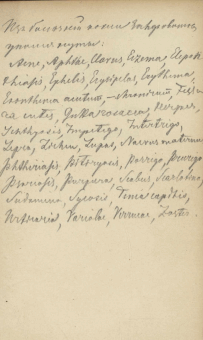 Изъ болѣзней кожи
Acne, Aphthae, Clavus, Eczema, Elephan-
thiasis, Ephelis, Erysipelas, Erythema,
Exanthema
ca cutis, Gutta rosacea, Herpes,
Ichthyosis, Impetigo, Intertrigo,
Lepra, Lichen, Lupus, Naevus maternus
Phthiriasis, Pityriasis, Porrigo, Prurigo
Psoriasis, Purpura, Scabies, Scarlatina,
Sudamina, Sycosis, Tinea capitis,
Urticaria, Variolae, Verrucae, Zoster.